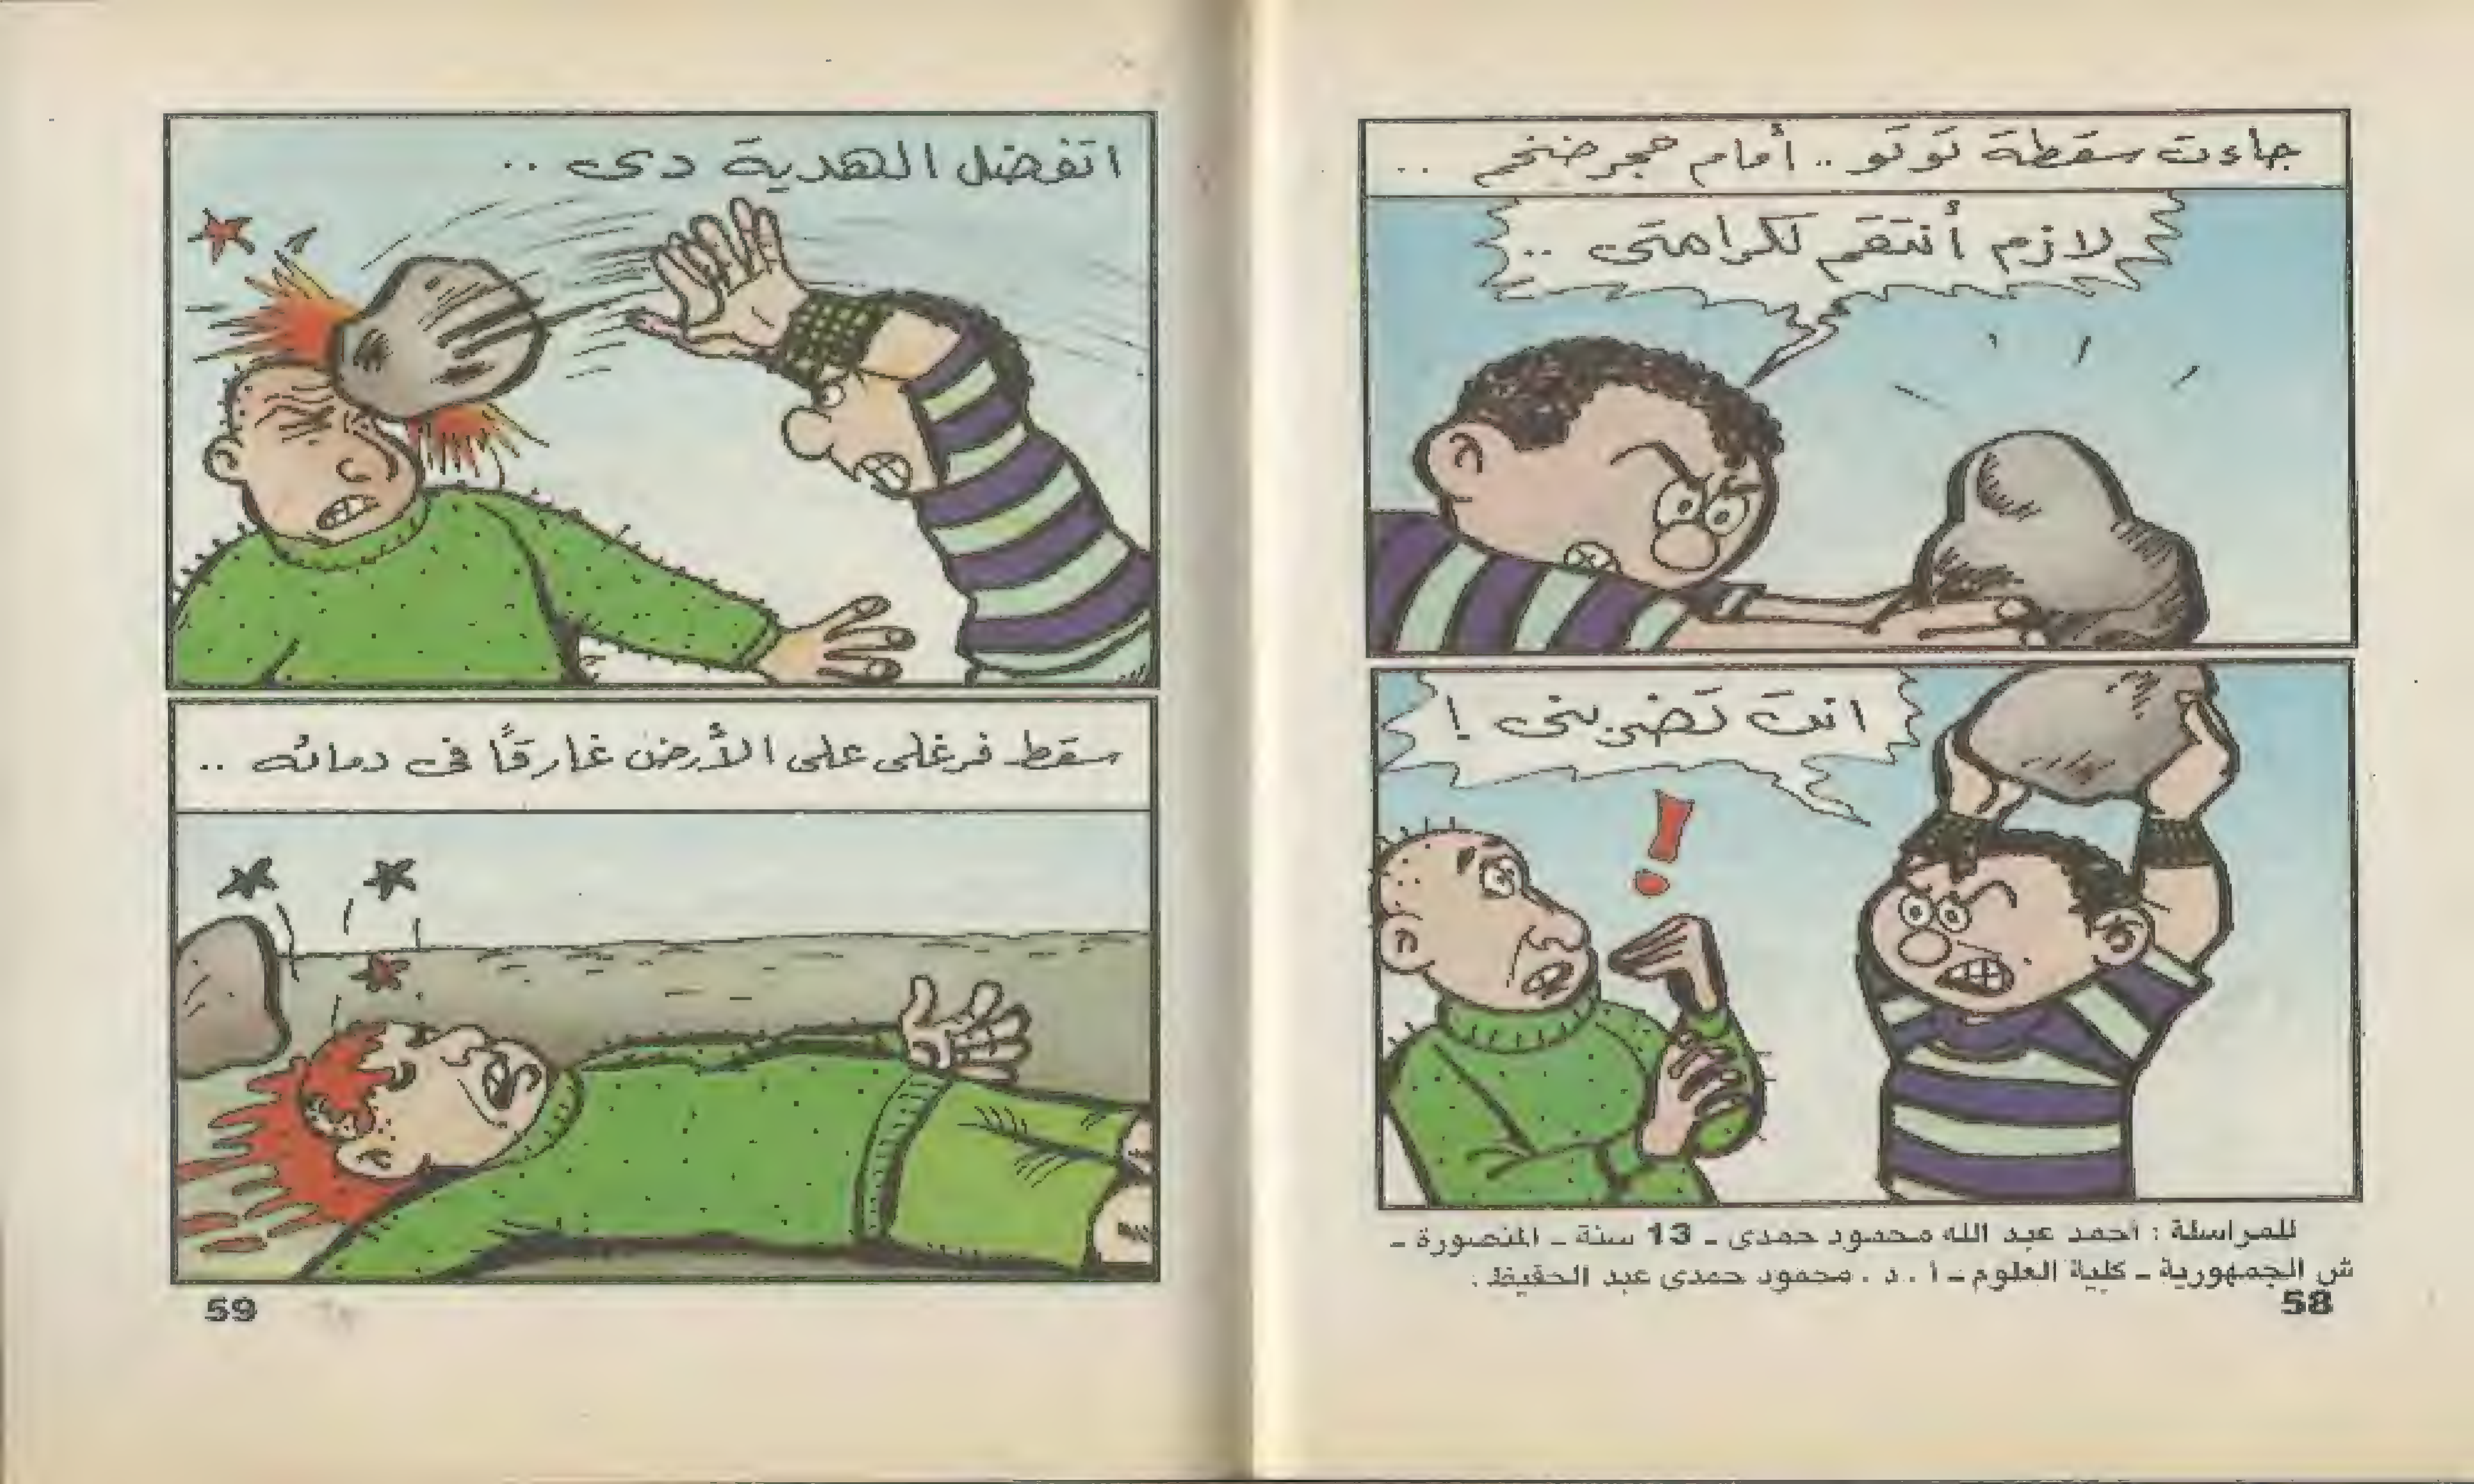 جاءت سقطة تَوتَو .. أمام حجر ضخم ..
لازم أنتقم لكرامتى ..
انت تَضربنى !
للمراسلة : أحمد عبد الله محمود حمدى - 13 سنة - المنصورة -
ش الجمهورية - كلية العلوم - أ . د . محمود حمدى عبد الحفيظ .
58
اتفضل الهدية دى ..
سقط فرغلى على الأرض غارقًا فى دمائه ..
59